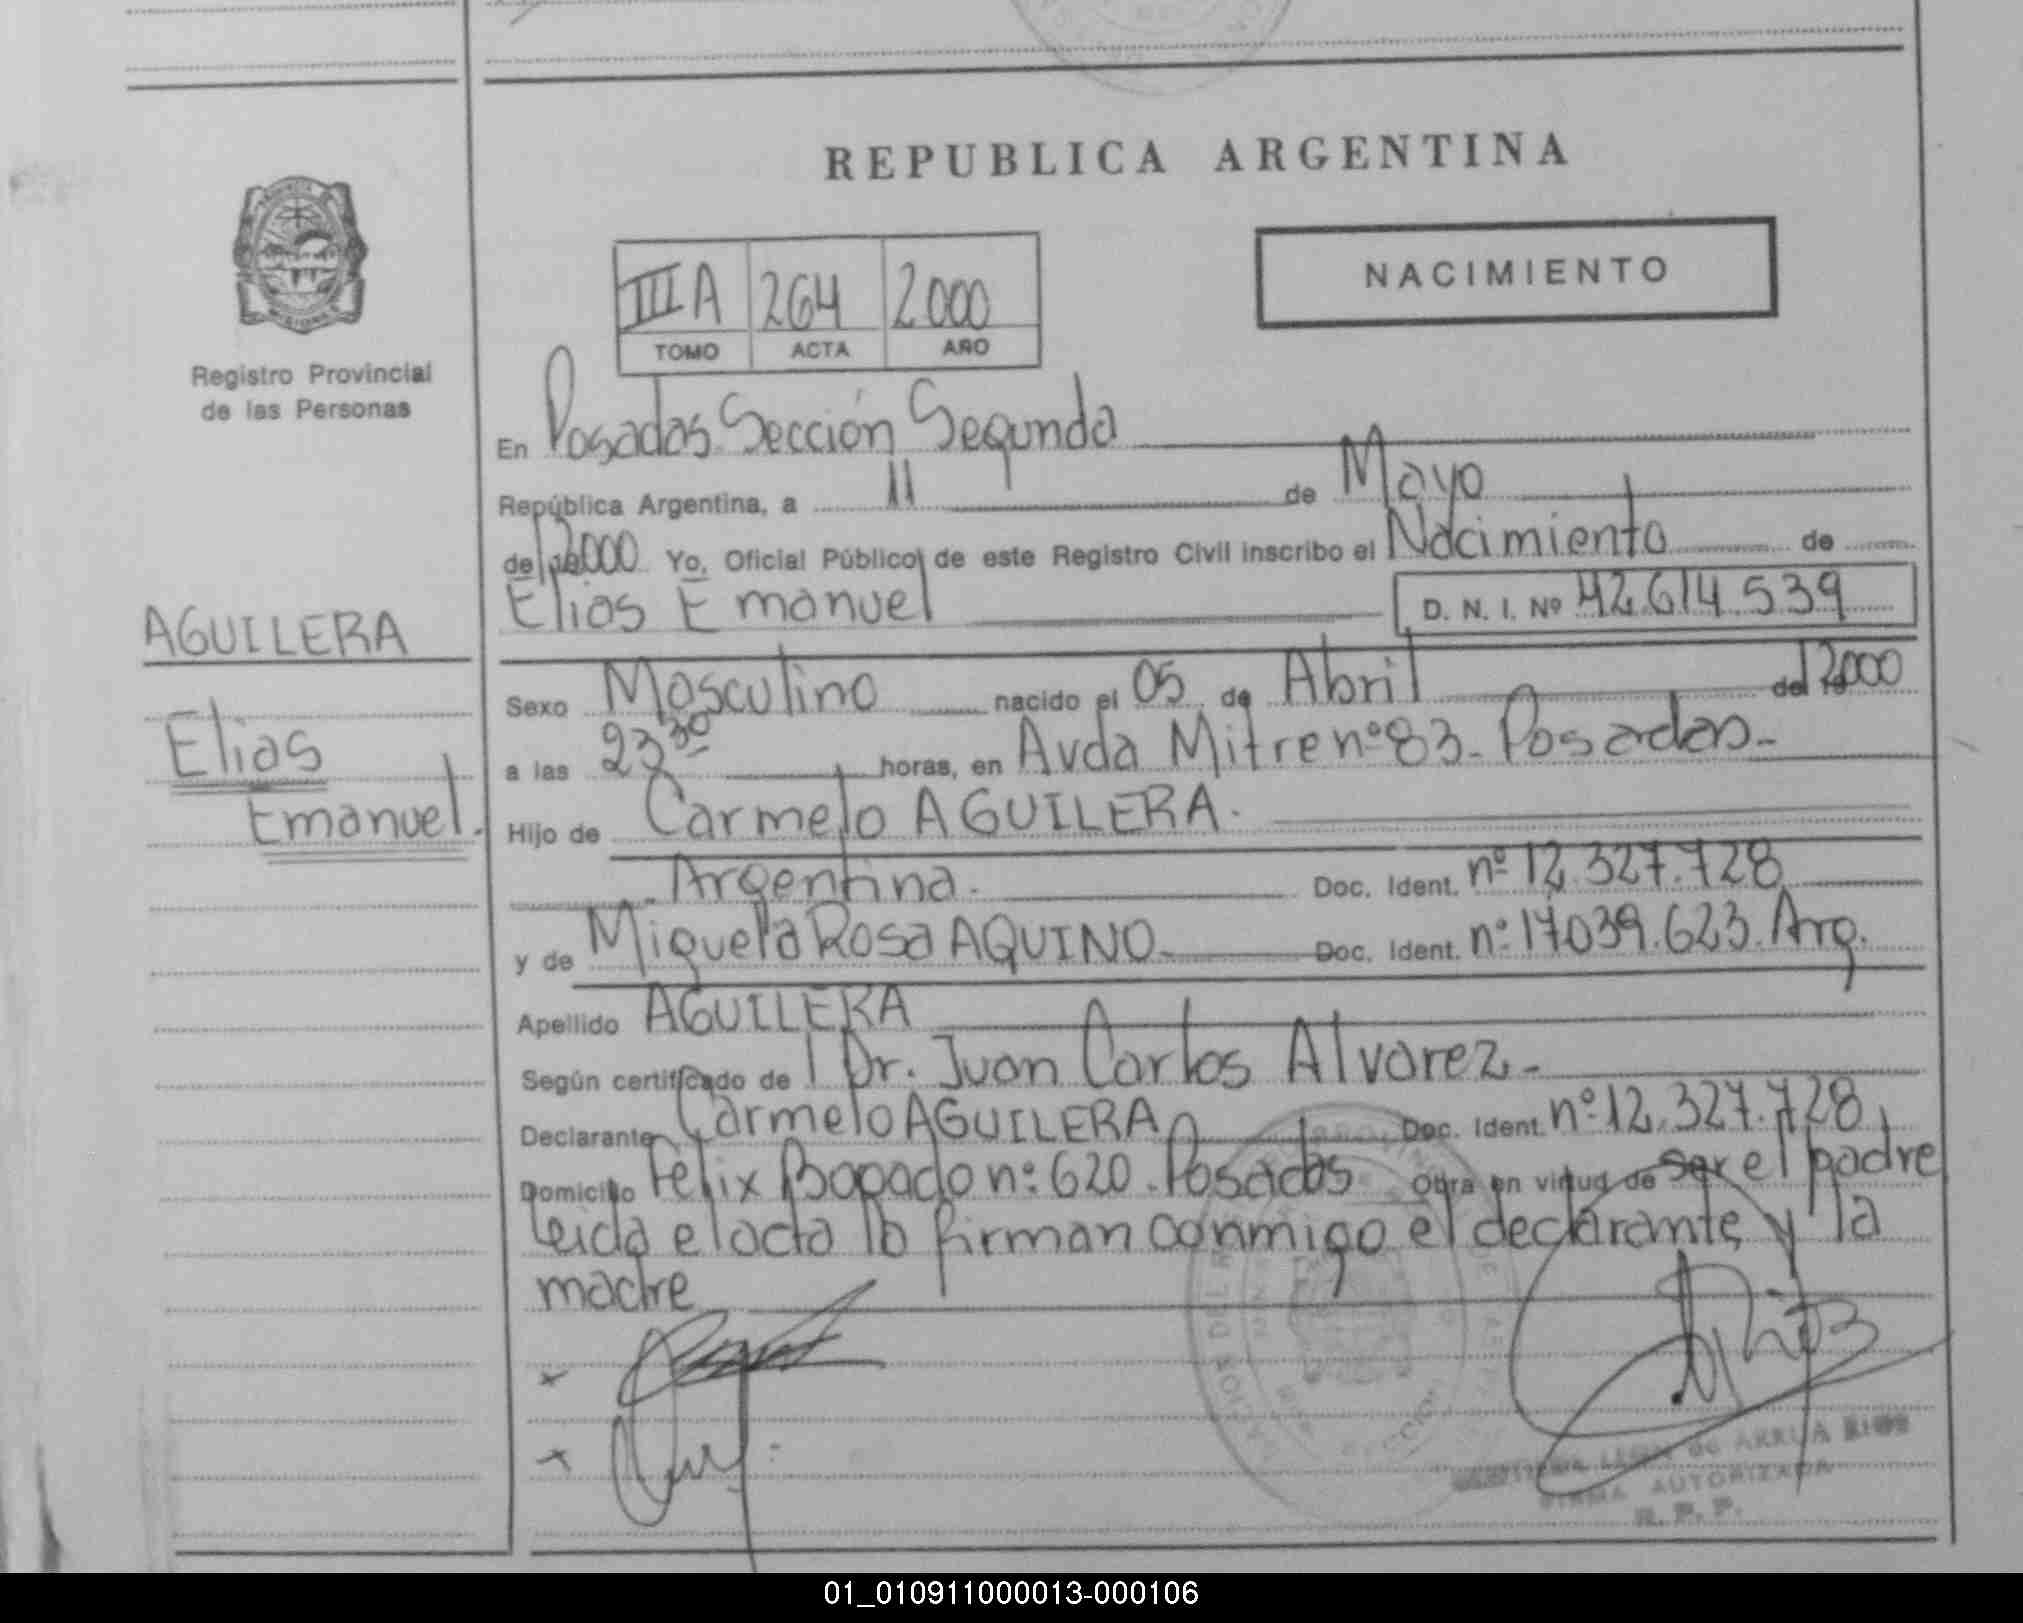 REPUBLICA ARGENTINA
III A 264 2000
TOMO ACTA AÑO
NACIMIENTO
Registro Provincial
de las Personas
En Posadas Sección Segunda
República Argentina, a 11 de Mayo
de 2000 Yo, Oficial Público de este Registro Civil inscribo el Nacimiento de
Elias Emanuel D. N. I. Nº 42.614.539
AGUILERA
Elias
Emanuel.
Sexo Masculino nacido el 05 de Abril de 2000
a las 23 30 horas, en Avda Mitre nº 83 - Posadas -
Hijo de Carmelo AGUILERA.
Argentina. Doc. Ident. nº 12.327.728
y de Miguela Rosa AQUINO - Doc. Ident. nº 17.039.623. Arg.
Apellido AGUILERA
Según certificado de Dr. Juan Carlos Alvarez -
Declarante Carmelo AGUILERA Doc. Ident. nº 12.327.728
Domicilio Felix Bogado nº 620 - Posadas Obra en virtud de ser el padre
leida el acta lo firman conmigo el declarante y la
madre
ARRUA RIOS
FIRMA AUTORIZADA
R. P. P.
01_010911000013-000106